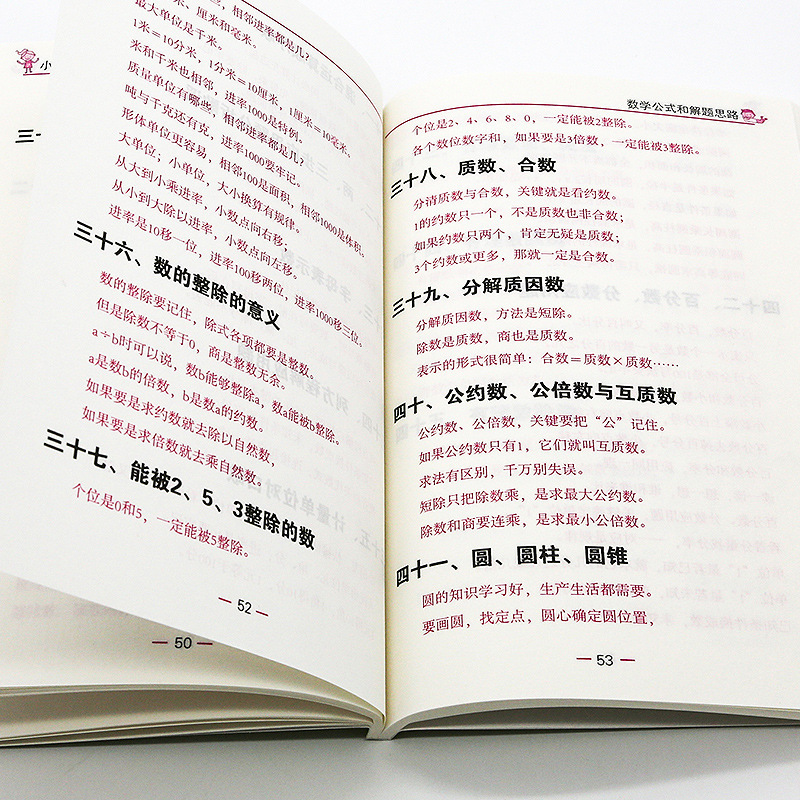 小
三十
，相邻进率都是几？
米、厘米和毫米。
最大单位是千米。
1米＝10分米，1分米＝10厘米，1厘米＝10毫米。
米和千米也相邻，进率1000是特例。
质量单位有哪些，相邻进率都是几？
吨与千克还有克，进率1000要牢记。
形体单位更容易，相邻100是面积，相邻1000是体积。
大单位；小单位，大小换算有规律。
从大到小乘进率，小数点向右移；
从小到大除以进率，小数点向左移。
进率是10移一位，进率100移两位，进率1000移三位。
三十六、数的整除的意义
数的整除要记住，除式各项都要是整数。
但是除数不等于0，商是整数无余。
a÷b时可以说，数b能够整除a，数a能被b整除。
a是数b的倍数，b是数a的约数。
如果要是求约数就去除以自然数，
如果要是求倍数就去乘自然数。
三十七、能被2、5、3整除的数
个位是0和5，一定能被5整除。
52
50
数学公式和解题思路
个位是2、4、6、8、0，一定能被2整除。
各个数位数字和，如果要是3倍数，一定能被3整除。
三十八、质数、合数
分清质数与合数，关键就是看约数。
1的约数只一个，不是质数也非合数；
如果约数只两个，肯定无疑是质数；
3个约数或更多，那就一定是合数。
三十九、分解质因数
分解质因数，方法是短除。
除数是质数，商也是质数。
表示的形式很简单：合数＝质数×质数……
四十、公约数、公倍数与互质数
公约数、公倍数，关键要把“公”记住。
如果公约数只有1，它们就叫互质数。
求法有区别，千万别失误。
短除只把除数乘，是求最大公约数。
除数和商要连乘，是求最小公倍数。
四十一、圆、圆柱、圆锥
圆的知识学习好，生产生活都需要。
要画圆，找定点，圆心确定圆位置，
53